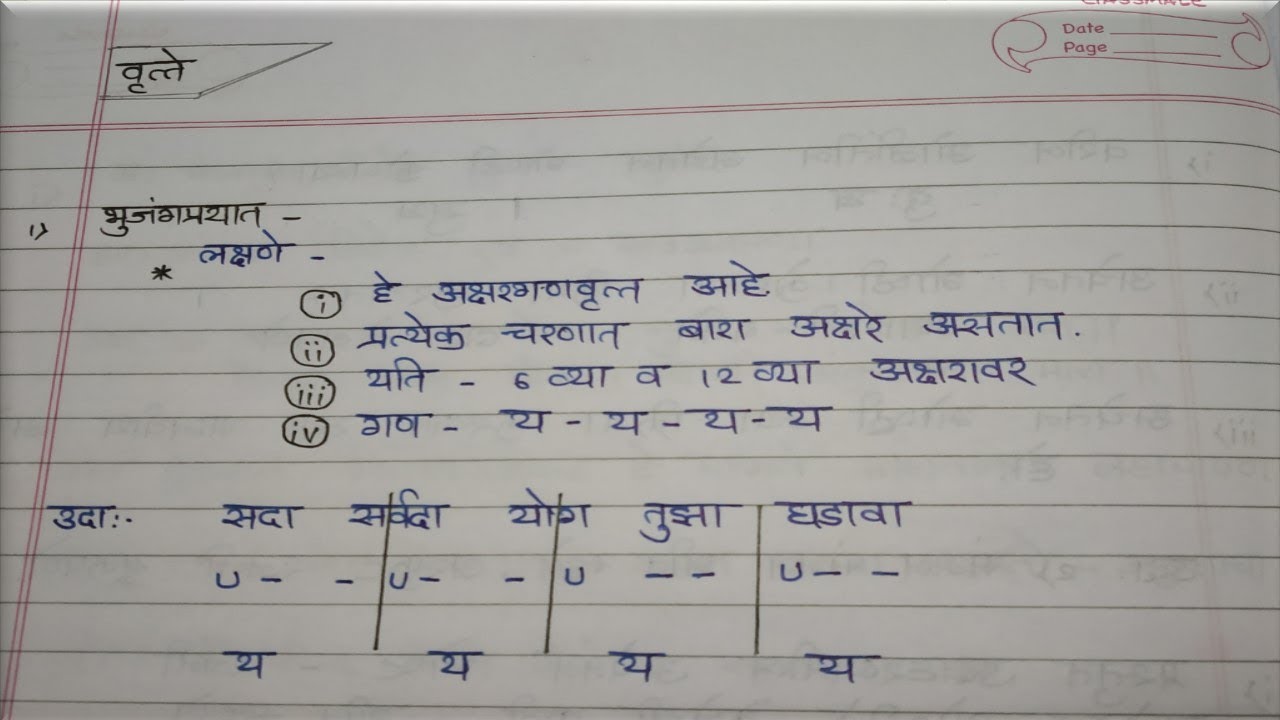 CLASSMATE
Date
Page
वृत्ते
1) भुजंगप्रयात -
* लक्षणे -
i हे अक्षरगणवृत्त आहे.
ii प्रत्येक चरणात बारा अक्षरे असतात.
iii यति - 6 व्या व 12 व्या अक्षरावर
iv गण - य - य - य - य
उदा:- सदा सर्वदा योग तुझा घडावा
U - - U - - U - - U - -
य य य य